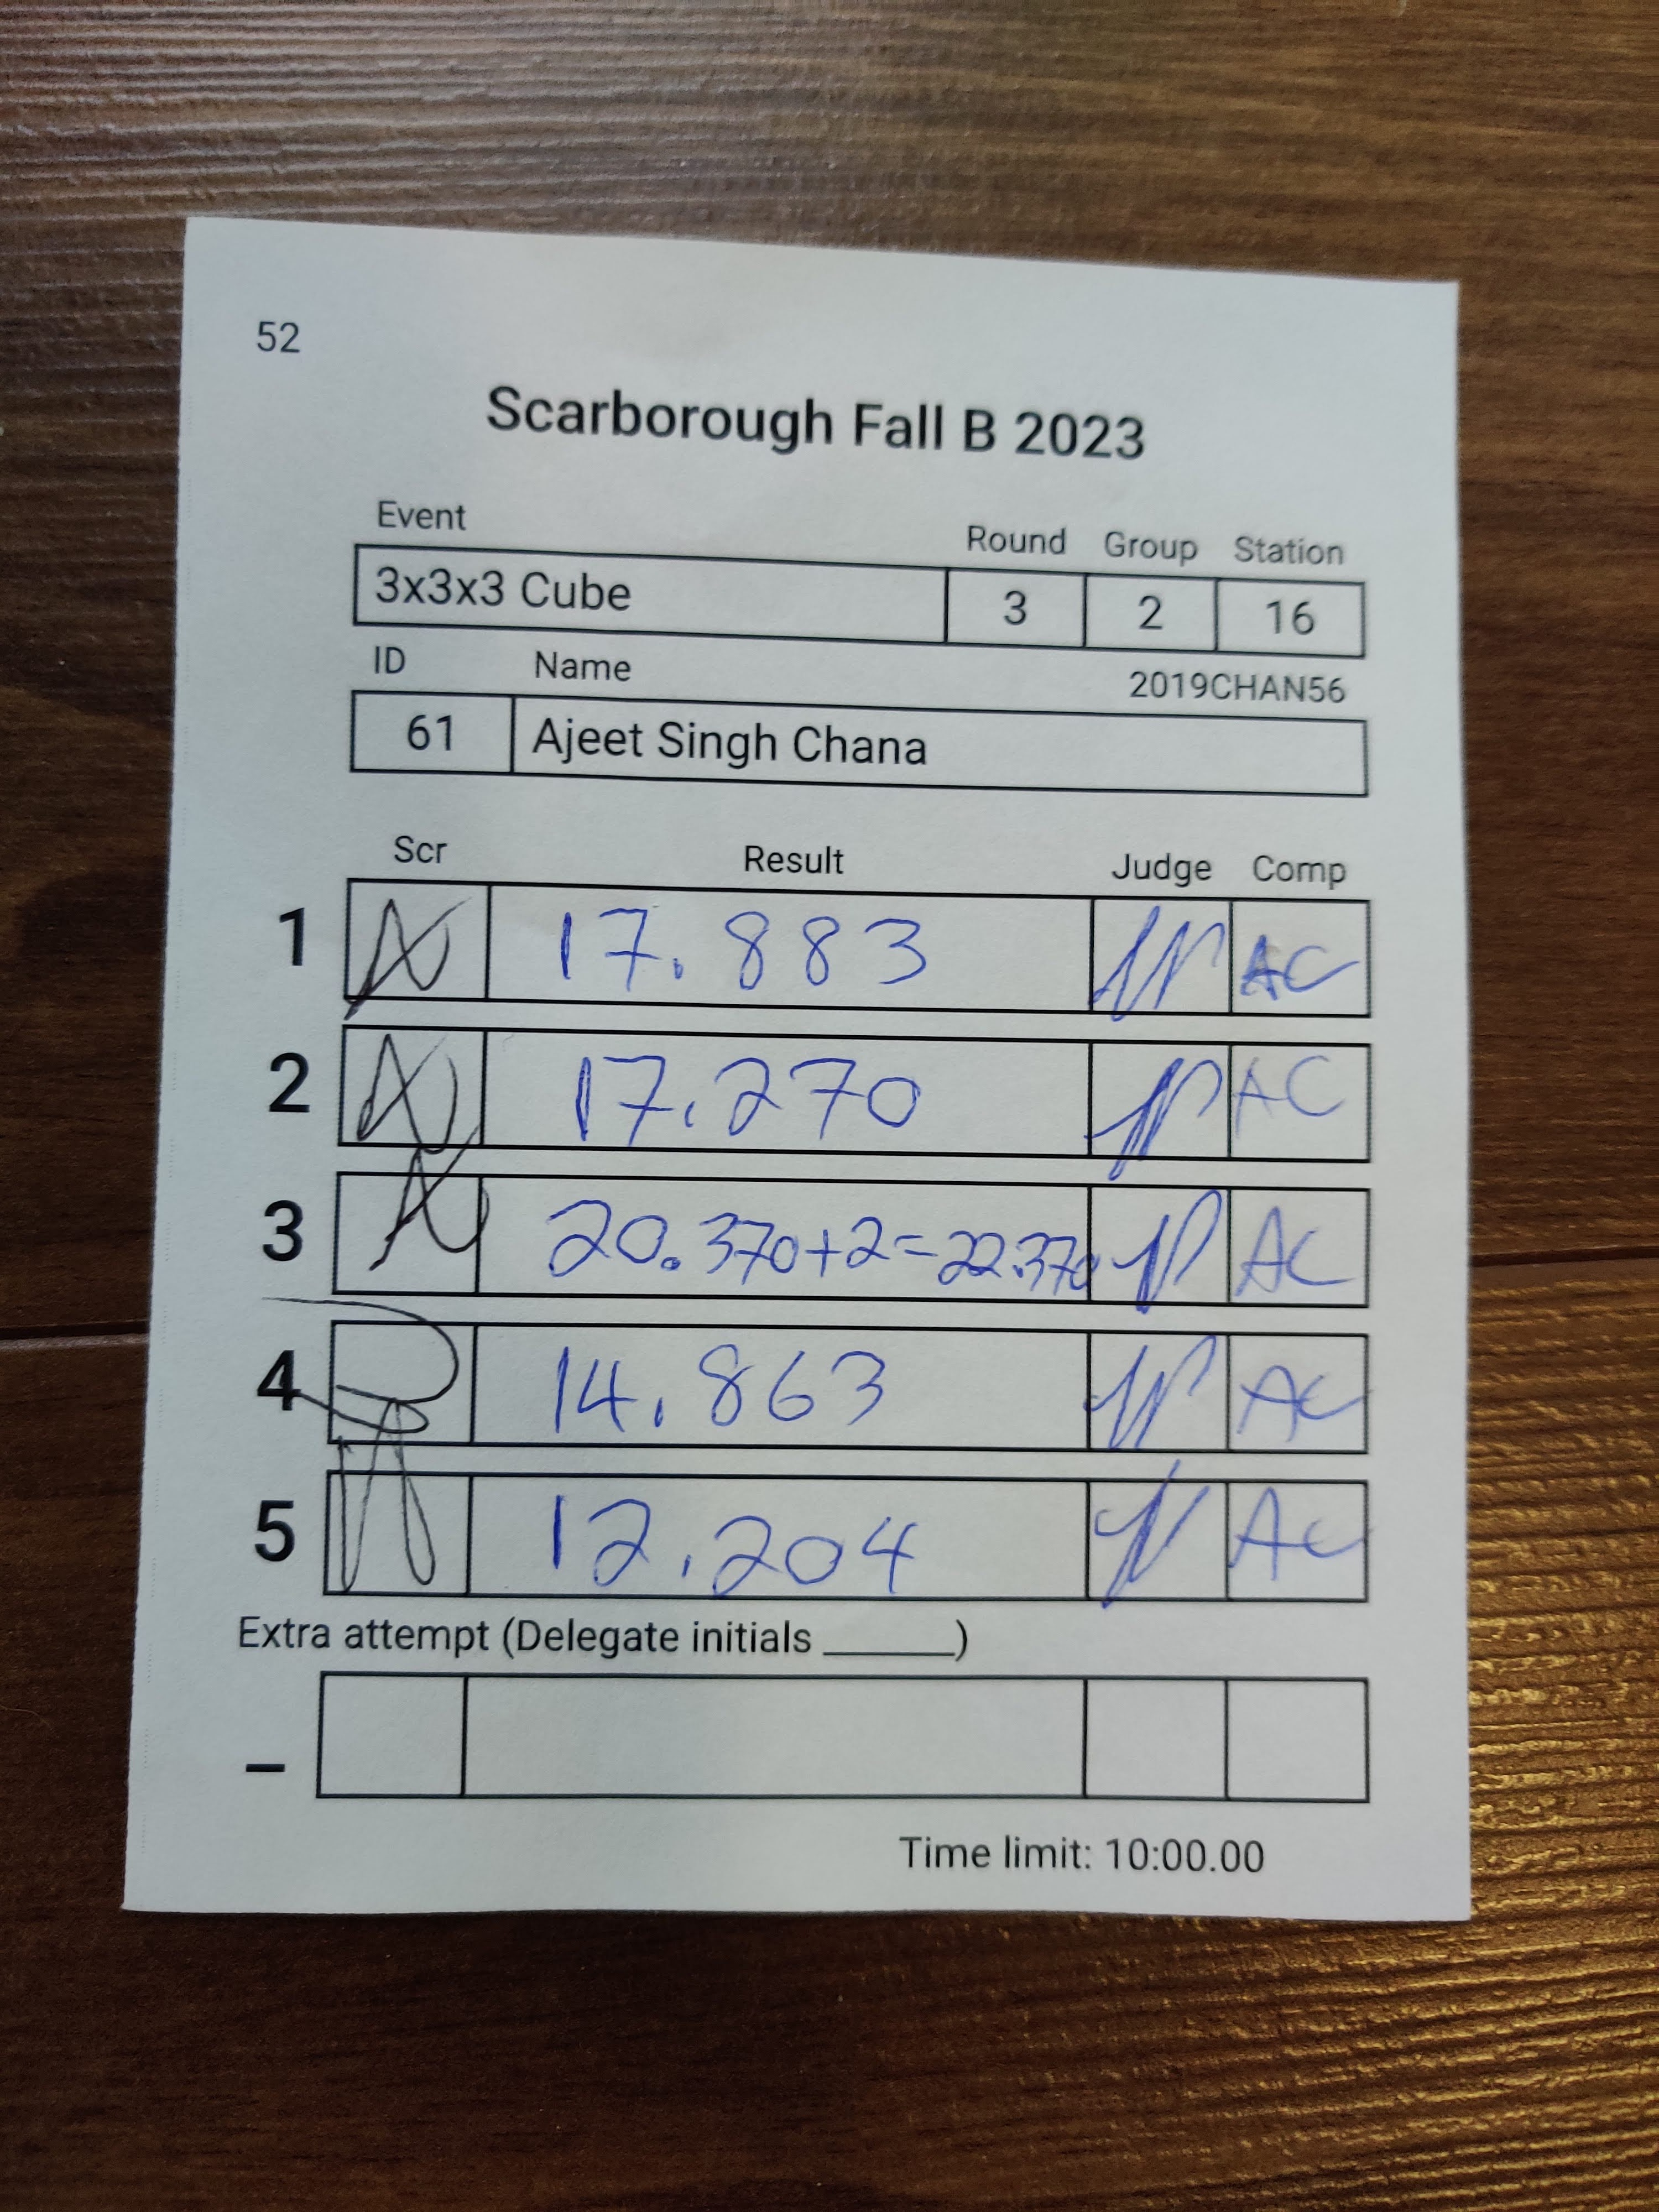 52
Scarborough Fall B 2023
Event Round Group Station
3x3x3 Cube 3 2 16
ID Name 2019CHAN56
61 Ajeet Singh Chana
Scr Result Judge Comp
1 17.883 AC
2 17.270 AC
3 20.370+2=22.370 AC
4 14.863 AC
5 12.204 AC
Extra attempt (Delegate initials ______)
–
Time limit: 10:00.00